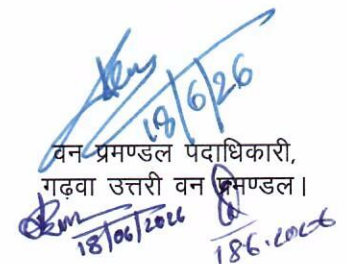 18/6/26
वन प्रमण्डल पदाधिकारी,
गढ़वा उत्तरी वन प्रमण्डल।
18/06/2026